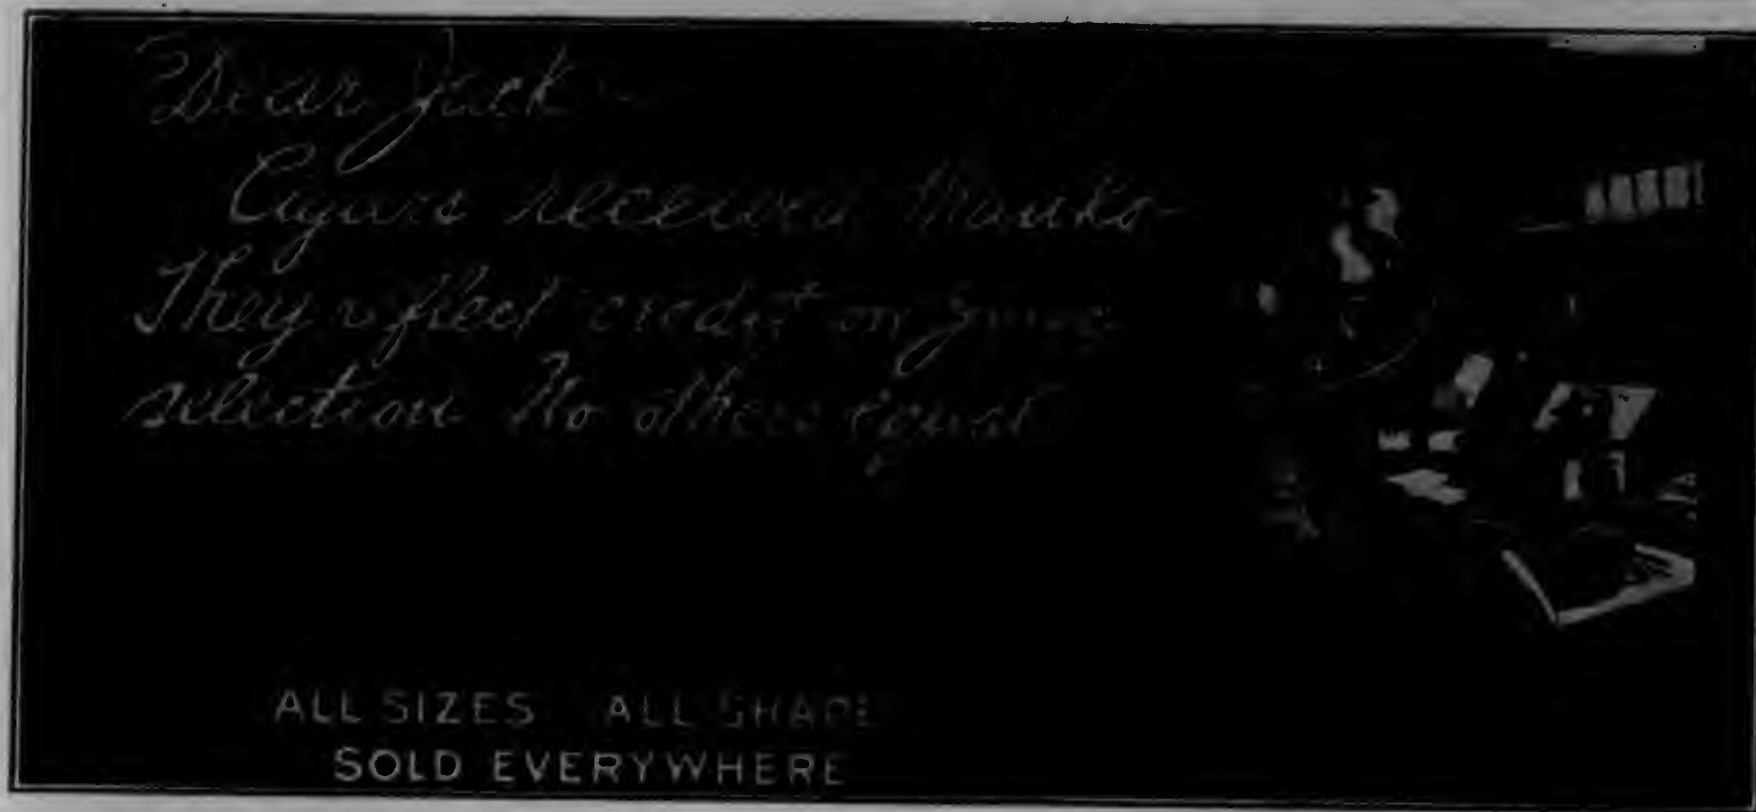 Dear Jack
Cigars received thanks
They reflect credit on your
selection No others equal
ALL SIZES ALL SHAPE
SOLD EVERYWHERE